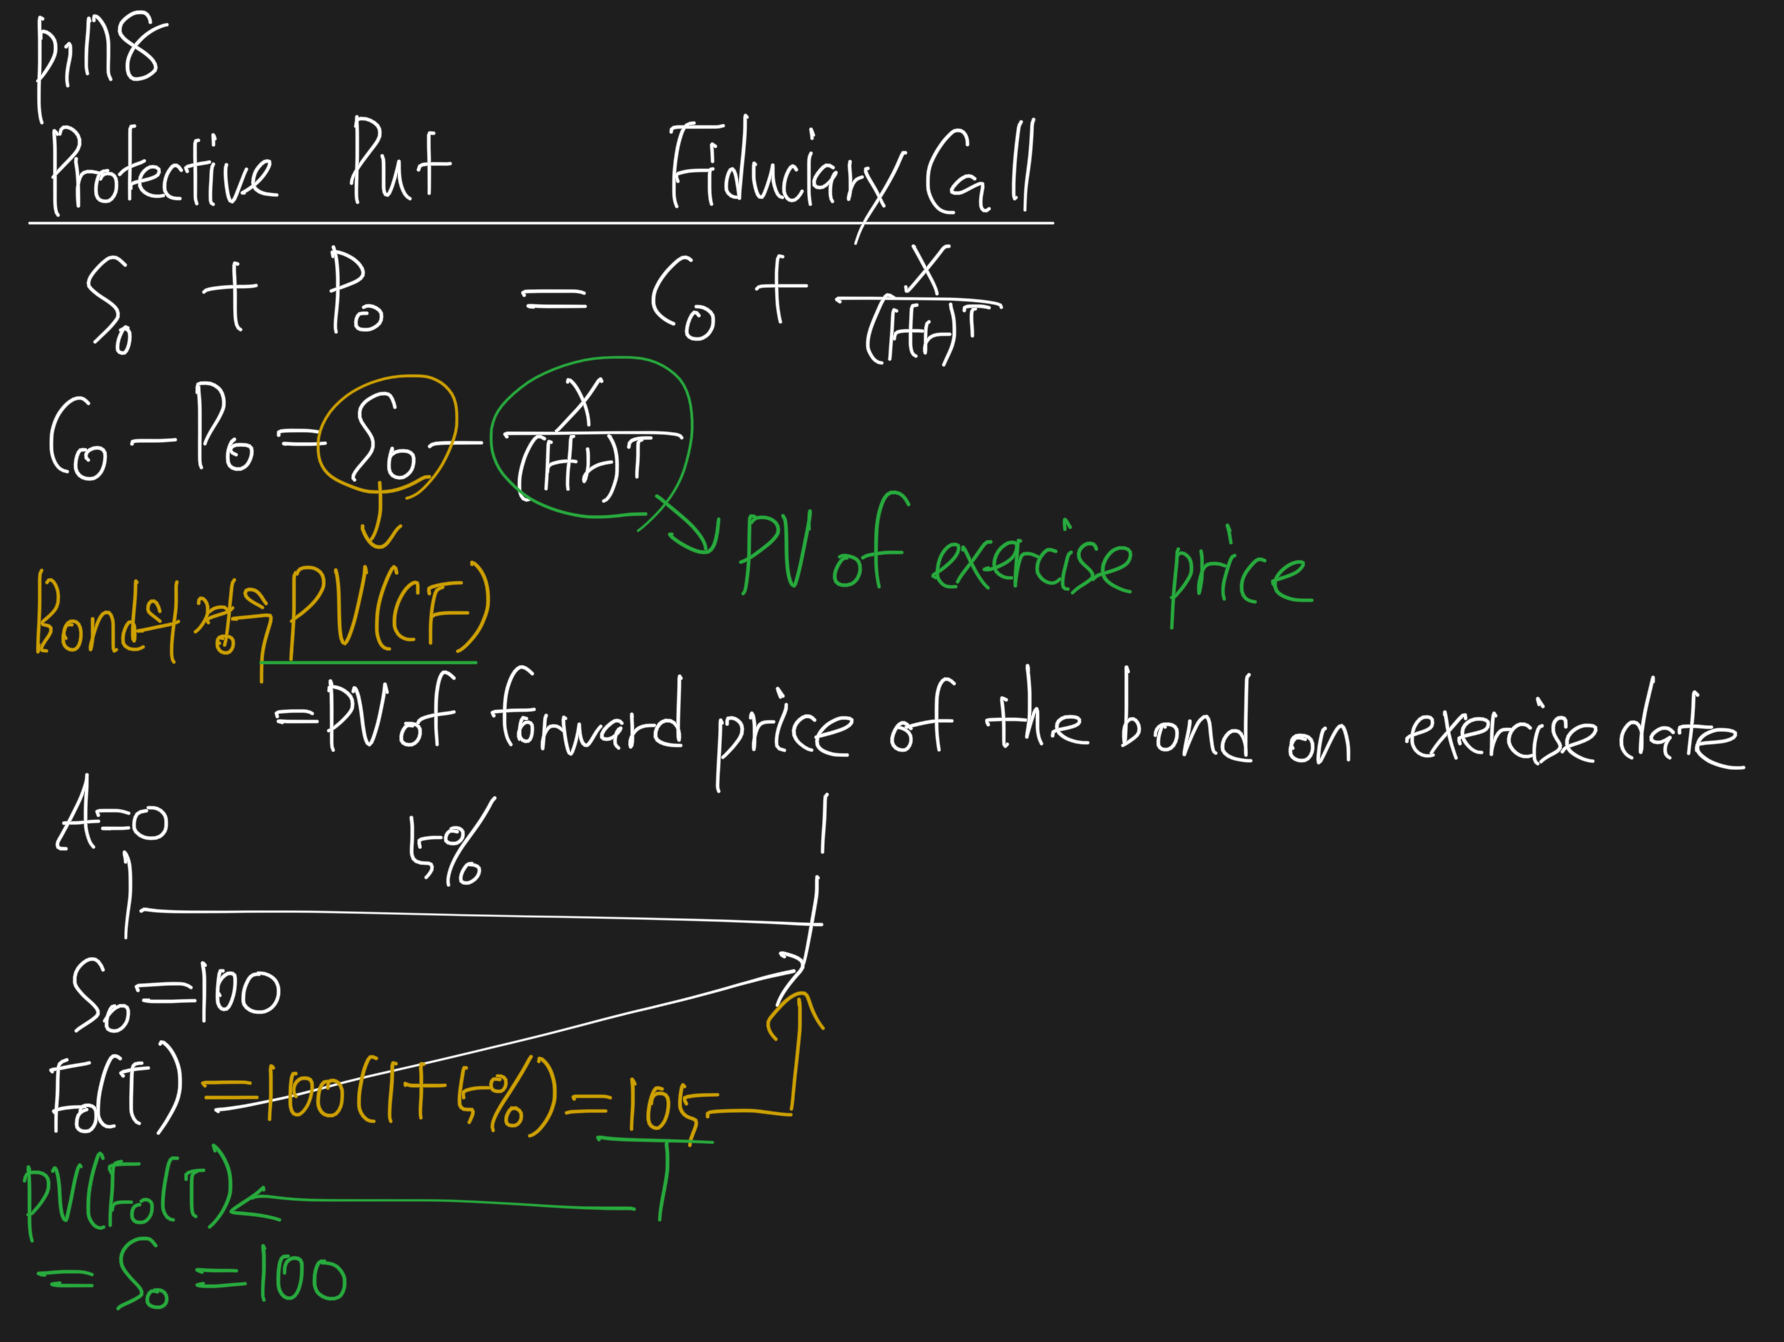 p.118
Protective Put Fiduciary Call
S₀ + P₀ = C₀ + X/(1+r)^T
C₀ - P₀ = S₀ - X/(1+r)^T
PV of exercise price
Bond의 경우 PV(CF)
=PV of forward price of the bond on exercise date
A=0 5% 1
S₀=100
F₀(T) =100(1+5%)=105
PV(F₀(T)
=S₀=100